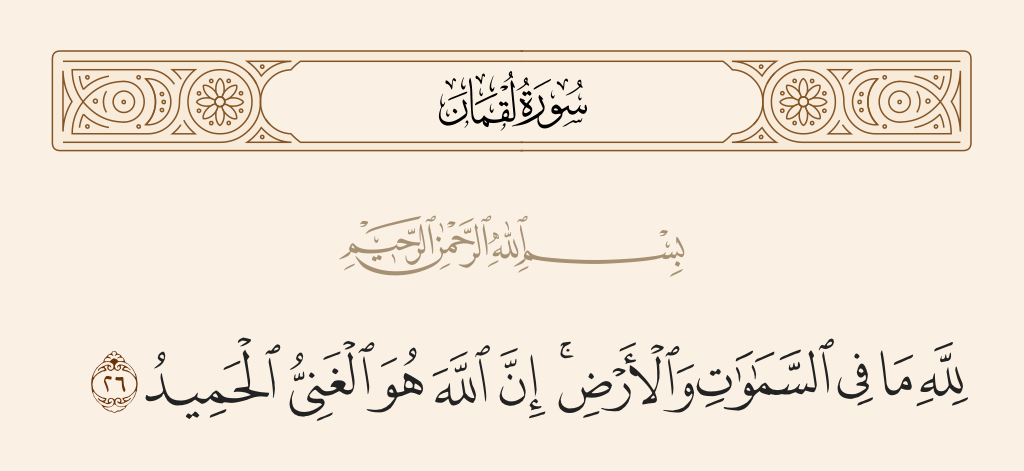 سُورَةُ لُقْمَان
بِسْمِ ٱللَّهِ ٱلرَّحْمَٰنِ ٱلرَّحِيمِ
لِلَّهِ مَا فِى ٱلسَّمَٰوَٰتِ وَٱلْأَرْضِ ۚ إِنَّ ٱللَّهَ هُوَ ٱلْغَنِىُّ ٱلْحَمِيدُ ٢٦